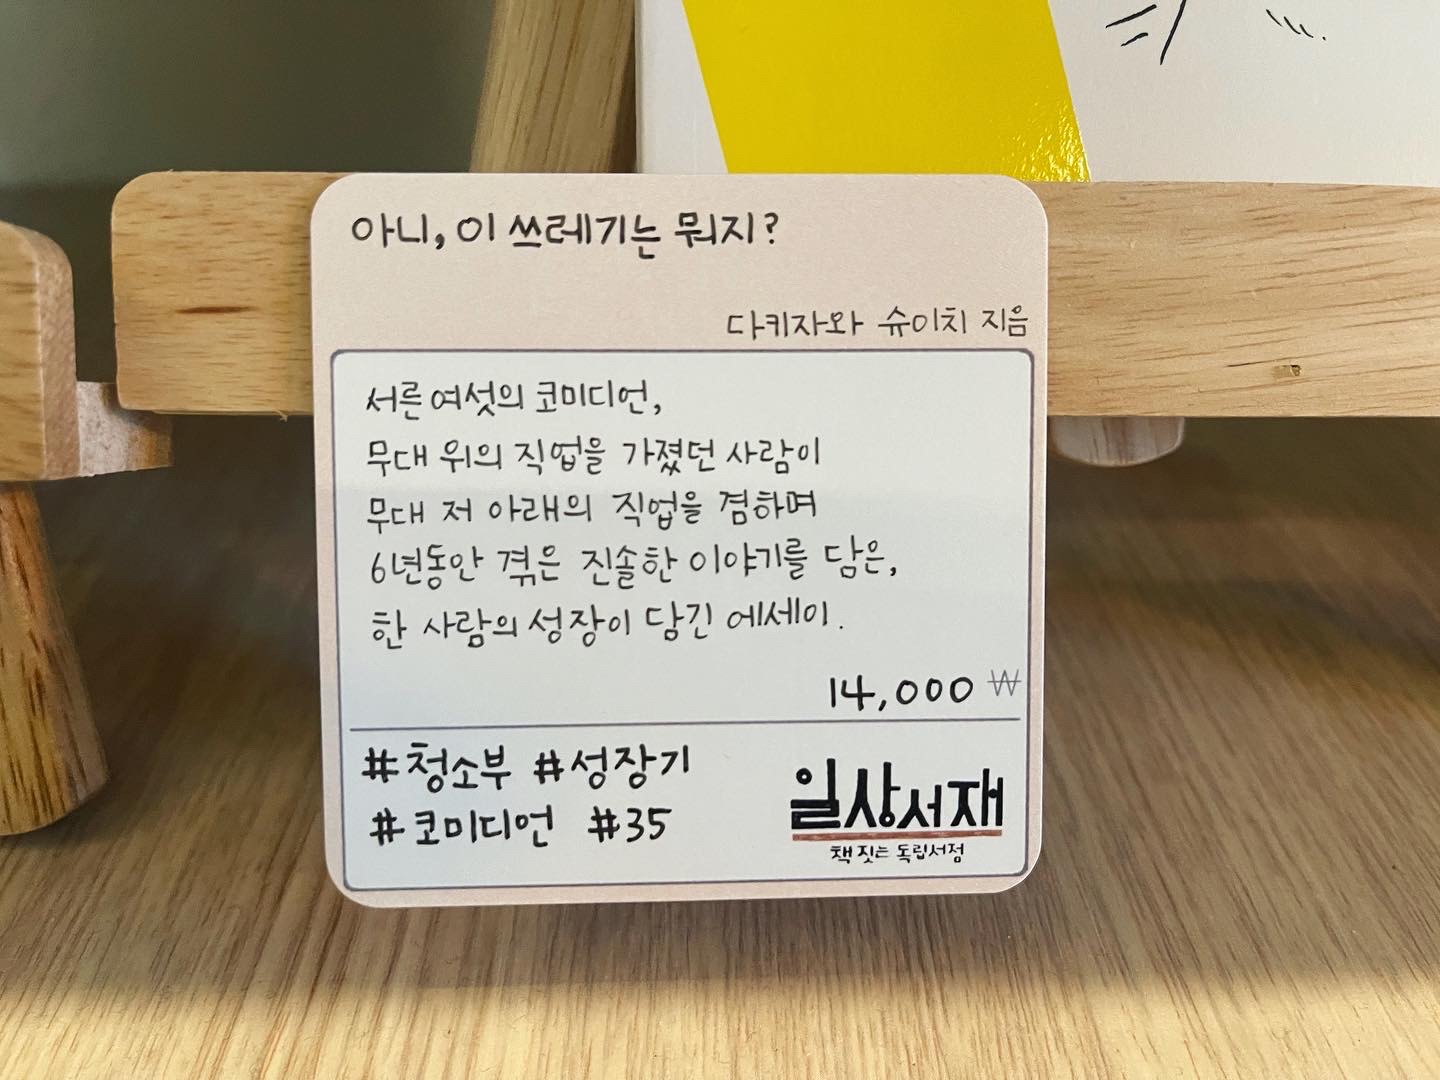 아니, 이 쓰레기는 뭐지?
다키자와 슈이치 지음
서른여섯의 코미디언,
무대 위의 직업을 가졌던 사람이
무대 저 아래의 직업을 겸하며
6년동안 겪은 진솔한 이야기를 담은,
한 사람의 성장이 담긴 에세이.
14,000 ₩
#청소부 #성장기
#코미디언 #35
일상서재
책 짓는 독립서점